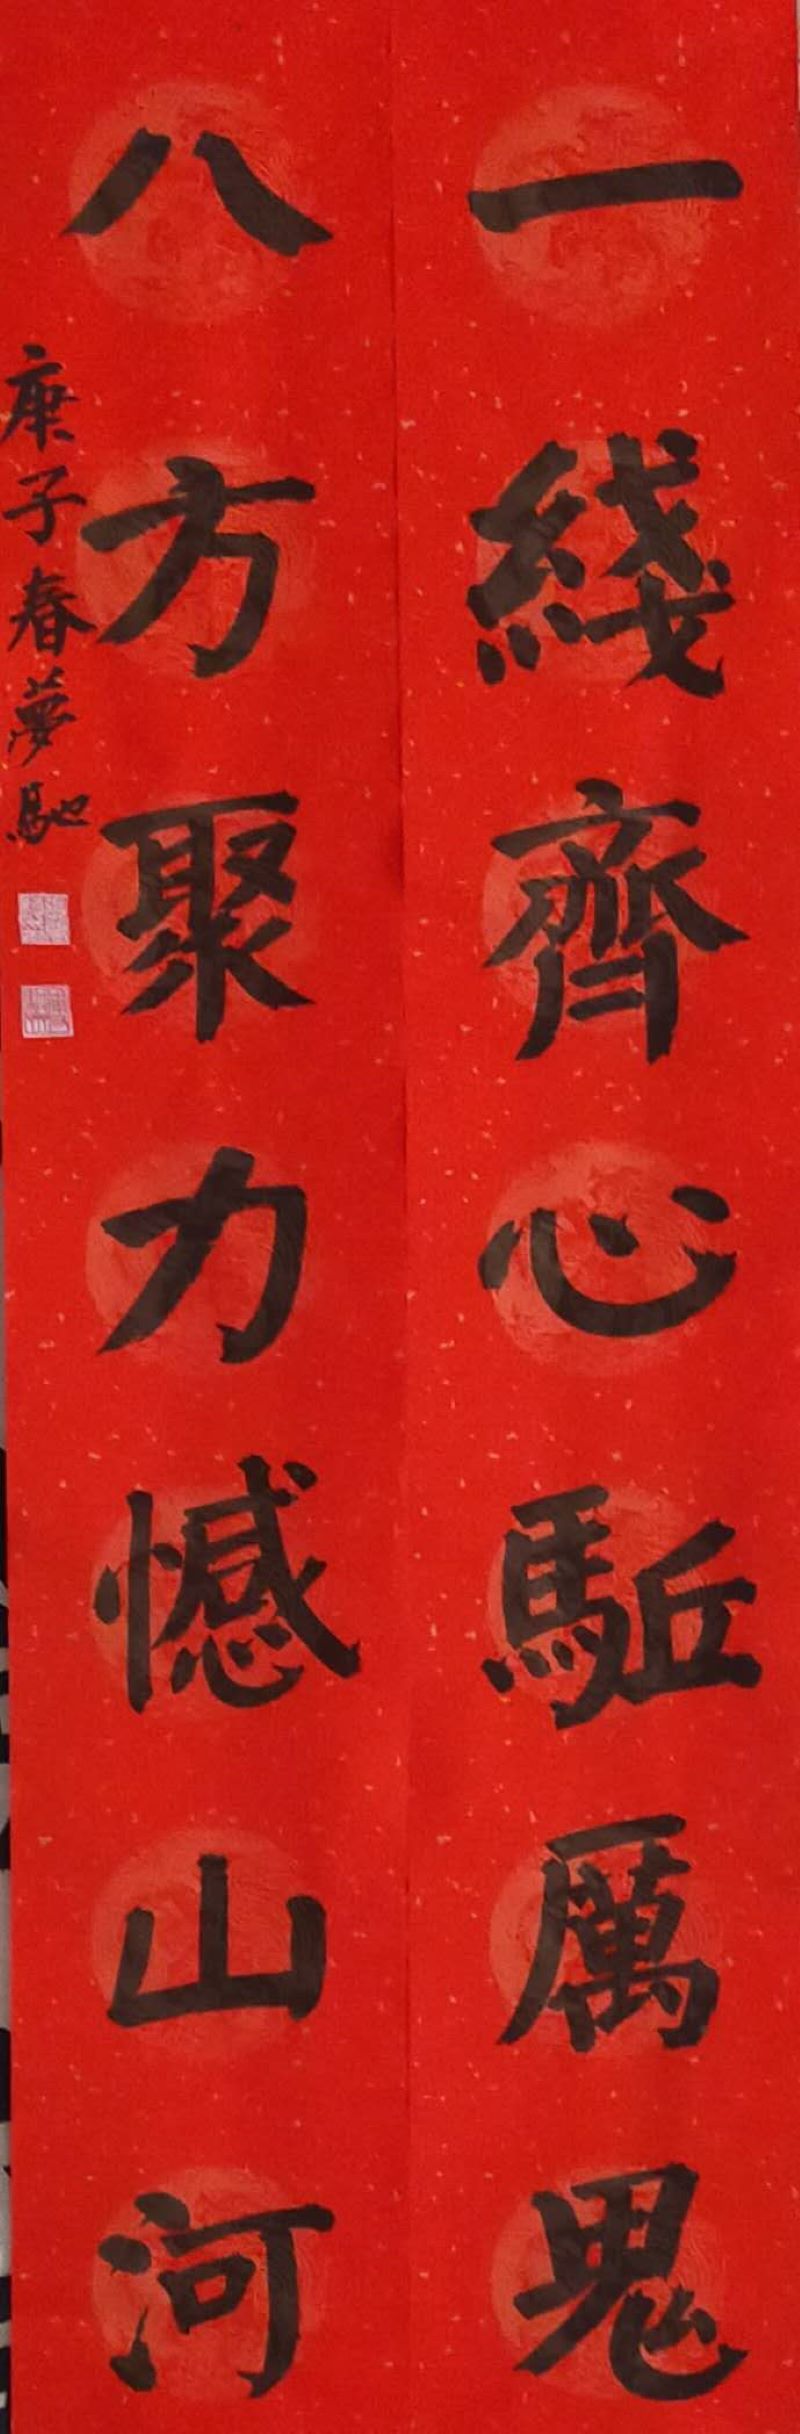 一綫齊心駈厲鬼
八方聚力憾山河
庚子春夢馳